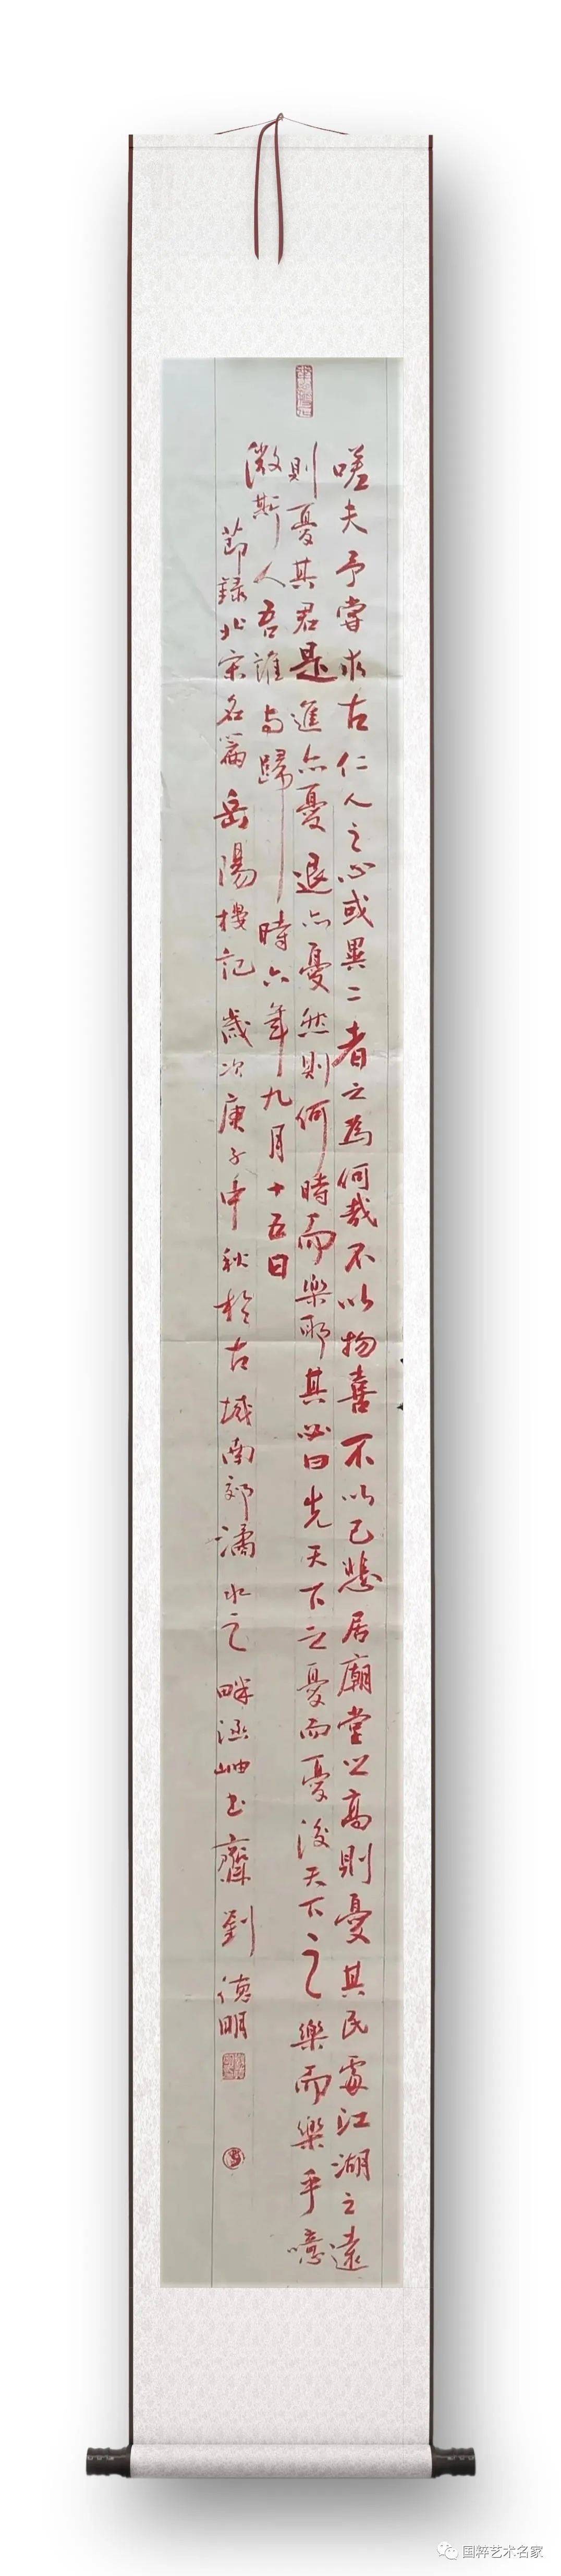 嗟夫予嘗求古仁人之心或異二者之為何哉不以物喜不以己悲居廟堂之高則憂其民處江湖之遠
則憂其君是進亦憂退亦憂然則何時而樂耶其必曰先天下之憂而憂後天下之樂而樂乎噫
微斯人吾誰與歸時六年九月十五日
節錄北宋名篇岳陽樓記歲次庚子中秋於古城南郊潏水之畔涵岫書齋劉德明
国粹艺术名家